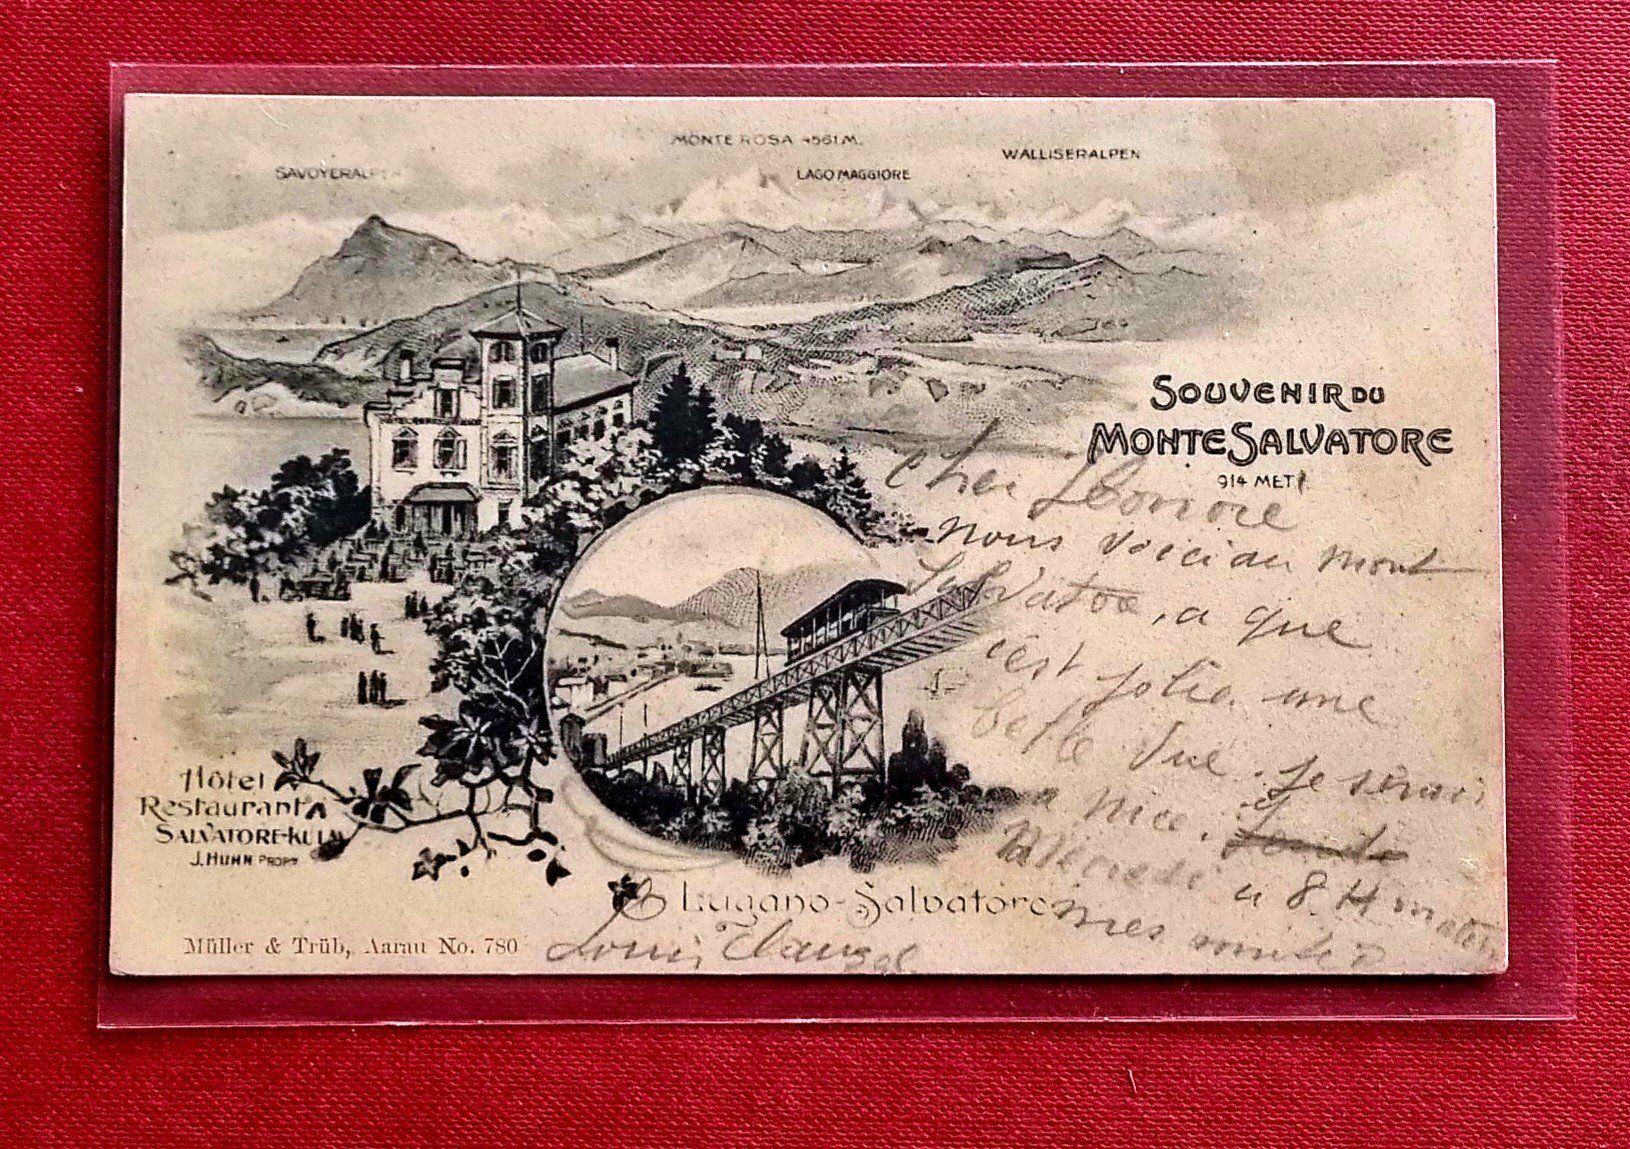 MONTE ROSA 4561 M.
WALLISERALPEN
SAVOYERALPEN
LAGO MAGGIORE
SOUVENIR DU
MONTE SALVATORE
914 MET
cher
nous voici au mont
Salvatoe, a que
c'est jolie une
belle vue. Je serai
a nice.
Mécredi a 8 H matin
mes
Hôtel
Restaurant
SALVATORE-KULM
J. HUHN PROPR
Lugano-Salvatore
Louis
Müller & Trüb, Aarau No. 780